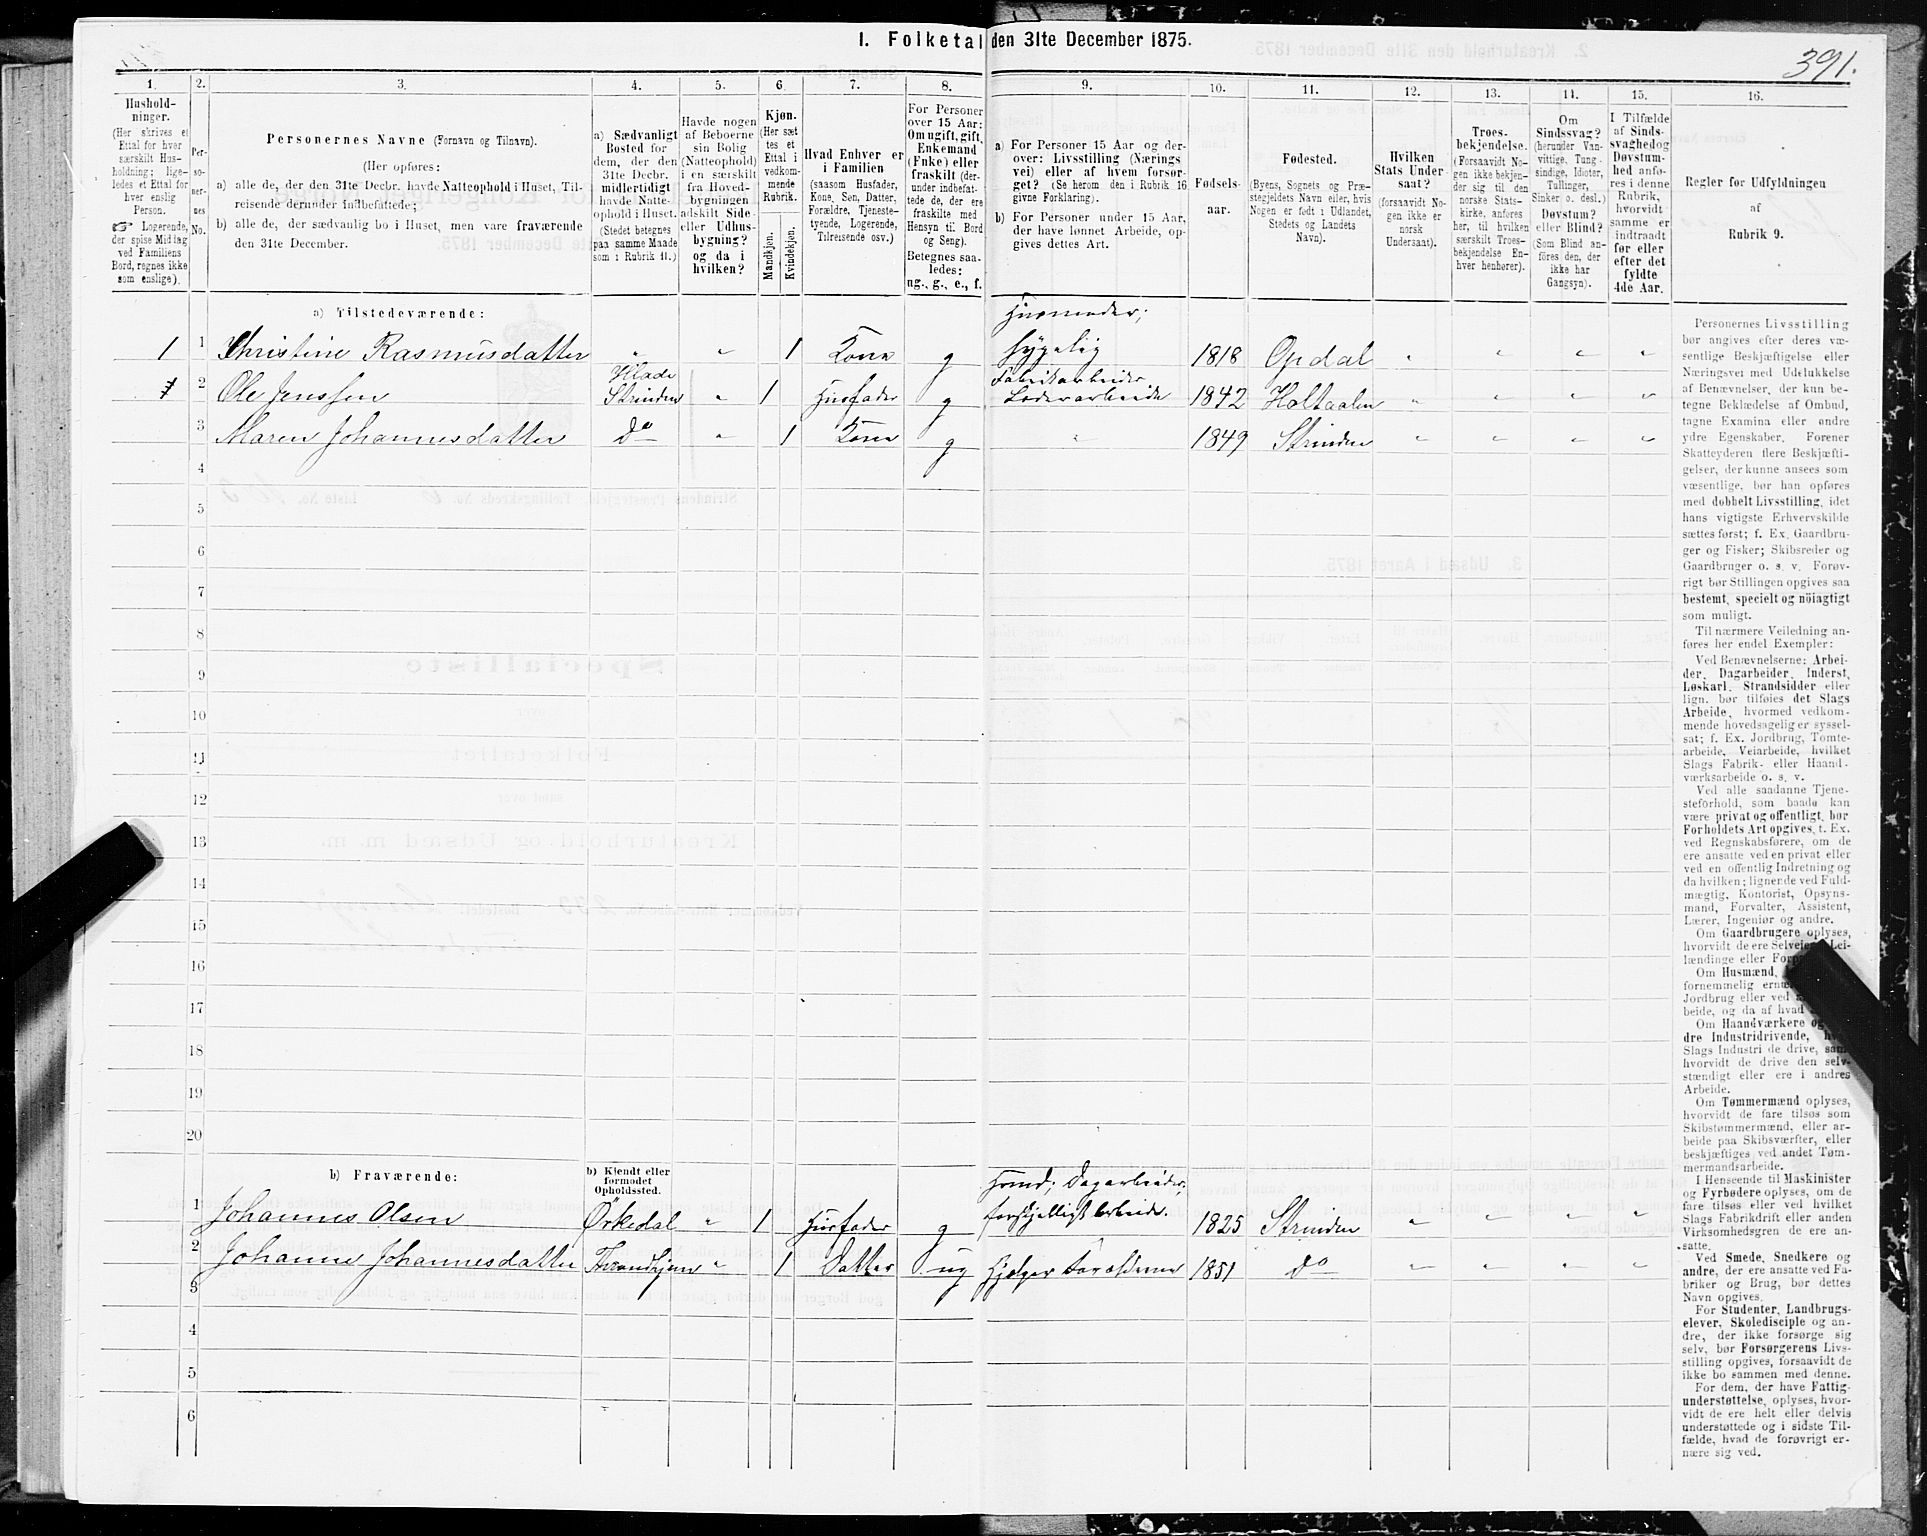 1. Folketal den 31te December 1875.
391.
1. 2. 3. 4. 5. 6. 7. 8. 9. 10. 11. 12. 13. 14. 15. 16.
Hushold-
ninger.
(Her skrives et
Ettal for hver
særskilt Hus-
holdning; lige-
ledes et Ettal for
hver enslig
Person.
☞ Logerende,
der spise Middag
ved Familiens
Bord, regnes ikke
som enslige).
Per-
soner-
nes
No.
Personernes Navne (Fornavn og Tilnavn).
(Her opføres:
a) alle de, der den 31te Decbr. havde Natteophold i Huset, Til-
reisende derunder indbefattede;
b) alle de, der sædvanlig bo i Huset, men vare fraværende
den 31te December.
a) Sædvanligt
Bosted for
dem, der den
31te Decbr.
midlertidigt
havde Natte-
ophold i Huset.
(Stedet betegnes
paa samme Maade
som i Rubrik 11.)
Havde nogen
af Beboerne
sin Bolig
(Natteophold)
i en særskilt
fra Hoved-
bygningen
adskilt Side-
eller Udhus-
bygning?
og da i
hvilken?
Kjøn.
(Her sæt-
tes et
Ettal i
vedkom-
mende
Rubrik.
Mandkjøn.
Kvindekjøn.
Hvad Enhver er
i Familien
(saasom Husfader,
Kone, Søn, Datter,
Forældre, Tjeneste-
tyende, Logerende,
Tilreisende osv.)
For Personer
over 15 Aar:
Om ugift, gift,
Enkemand
(Enke) eller
fraskilt (der-
under indbefat-
tede de, der ere
fraskilte med
Hensyn til Bord
og Seng).
Betegnes saa-
ledes:
ug., g., e., f.
a) For Personer 15 Aar og der-
over: Livsstilling (Nærings-
vei) eller af hvem forsør-
get? (Se herom den i Rubrik 16
givne Forklaring).
b) For Personer under 15 Aar,
der have lønnet Arbeide, op-
gives dettes Art.
Fødsels-
aar.
Fødested.
(Byens, Sognets og Præ-
stegjeldets Navn eller, hvis
Nogen er født i Udlandet,
Stedets og Landets
Navn).
Hvilken
Stats Under-
saat?
(forsaavidt No-
gen ikke er
norsk
Undersaat).
Troes-
bekjendelse.
(Forsaavidt No-
gen ikke bekjen-
der sig til den
norske Stats-
kirke, anføres
her, til hvilken
særskilt Troes-
bekjendelse En-
hver henhører).
Om
Sindssvag?
(herunder Van-
vittige, Tung-
sindige, Idioter,
Tullinger,
Sinker o. desl.)
Døvstum?
eller Blind?
(Som Blind an-
føres den, der
ikke har
Gangsyn).
I Tilfælde
af Sinds-
svaghed og
Døvstum-
hed anfø-
res i denne
Rubrik,
hvorvidt
samme er
indtraadt
før eller
efter det
fyldte
4de Aar.
Regler for Udfyldningen
af
Rubrik 9.
a) Tilstedeværende:
Husmoder;
1 1 Christine Rasmusdatter " " 1 Kone g sygelig 1818 Opdal " " " "
Hlade Fabrikarbeider
2 Ole Jenssen Strinden " 1 Husfader g 1842 Holtaalen " " " "
3 Maren Johannesdatter Do " 1 Kone g " 1849 Strinden " " " "
4
5
6
7
8
9
10
11
12
13
14
15
16
17
18
19
20
b) Fraværende:
b) Kjendt eller
formodet
Opholdssted.
Hmd; Dagarbeider,
1 Johannes Olsen Ørkedal " 1 Husfader g forskjelligt Arbeide. 1825 Strinden " " " "
2 Johanne Johannesdatter Throndhjem " 1 Datter ug Hjælper Forældrene 1851 Do " " " "
3
4
5
6
Personernes Livsstilling
bør angives efter deres væ-
sentlige Beskjæftigelse eller
Næringsvei med Udelukkelse
af Benævnelser, der kun be-
tegne Beklædelse af Ombud,
tagne Examina eller andre
ydre Egenskaber. Forener
Skatteyderen flere Beskjæfti-
gelser, der kunne ansees som
væsentlige, bør han opføres
med dobbelt Livsstilling, idet
hans vigtigste Erhvervskilde
sættes først; f. Ex. Gaardbru-
ger og Fisker; Skibsreder og
Gaardbruger o. s. v. Forøv-
rigt bør Stillingen opgives saa
bestemt, specielt og nöiagtigt
som muligt.
Til nærmere Veiledning an-
føres her endel Exempler:
Ved Benævnelserne: Arbei-
der, Dagarbeider, Inderst,
Løskarl, Strandsidder eller
lign. bør tilføies det Slags
Arbeide, hvormed vedkom-
mende hovedsagelig er syssel-
sat; f. Ex. Jordbrug, Tomte-
arbeide, Veiarbeide, hvilket
Slags Fabrik- eller Haand-
værksarbeide o. s. v.
Ved alle saadanne Tjene-
steforhold, som baade kan
være privat og offentligt, bør
Forholdets Art opgives, t. Ex.
ved Regnskabsførere, om de
ere ansatte ved en privat eller
ved en offentlig Indretning og
da hvilken; lignende ved Fuld-
mægtig, Kontorist, Opsyns-
mand, Forvalter, Assistent,
Lærer, Ingeniør og andre.
Om Gaardbrugere oplyses,
hvorvidt de ere Selveiere, Lei-
lændinge eller
Om Husmænd,
fornemmelig
Jordbrug eller ved
beide, og da af hvad
Om Haandværkere og
dre Industridrivende,
Slags Industri de drive, samt
hvorvidt de drive den selv-
stændigt eller ere i andres
Arbeide.
Om Tømmermænd oplyses,
hvorvidt de fare tilsøs som
Skibstømmermænd, eller ar-
beide paa Skibsværfter, eller
beskjæftiges ved andet Tøm-
mermandsarbeide.
I Henseende til Maskinister
og Fyrbødere oplyses, om de
fare tilsøs eller ved hvilket
Slags Fabrikdrift eller anden
Virksomhedsgren de ere an-
satte.
Ved Smede, Snedkere og
andre, der ere ansatte ved Fa-
briker og Brug, bør dettes
Navn opgives.
For Studenter, Landbrugs-
elever, Skoledisciple og an-
dre, der ikke forsørge sig
selv, bør Forsørgerens Livs-
stilling opgives, forsaavidt de
ikke bo sammen med denne.
For dem, der have Fattig-
understøttelse, oplyses, hvor-
vidt de ere helt eller delvis
understøttede og i sidste Til-
fælde, hvad de forøvrigt er-
nære sig ved.